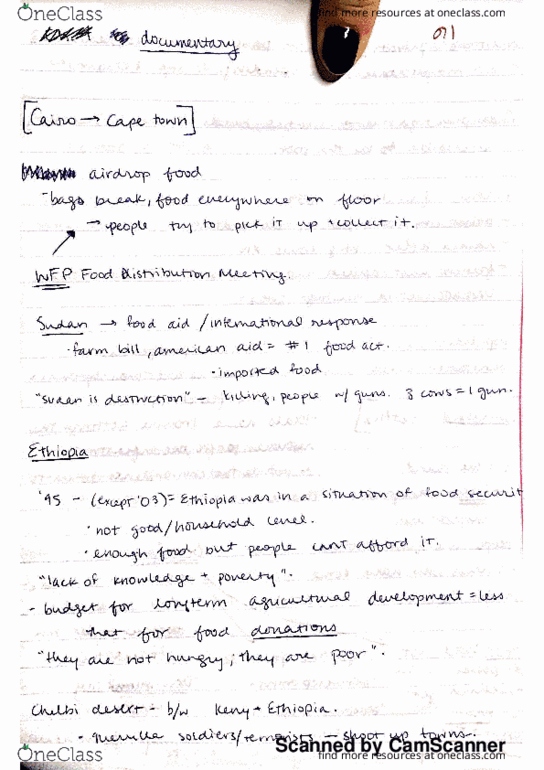 OneClass
find more resources at oneclass.com
documentary
[Cairo → Cape town]
airdrop food
- bags break, food everywhere on floor
→ people try to pick it up + collect it.
WFP Food Distribution Meeting.
Sudan → food aid / international response
· farm bill, american aid = #1 food act.
· imported food
"sudan is destruction" - killing, people w/ guns. 3 cows = 1 gun.
Ethiopia
'95 - (except '03) = Ethiopia was in a situation of food securit
· not good/household level.
· enough food but people can't afford it.
"lack of knowledge + poverty".
- budget for longterm agricultural development = less
that for food donations
"they are not hungry; they are poor".
Chelbi desert - b/w Keny + Ethiopia.
· soldiers/terrorists - shoot up towns.
Scanned by CamScanner
OneClass
find more resources at oneclass.com